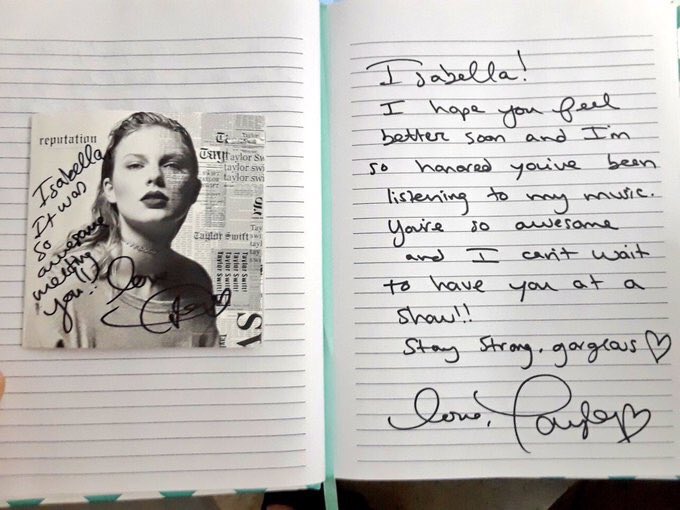 reputation
Isabella
It was
so
awesome
meeting
you!!
love
Taylor Swift
Isabella!
I hope you feel
better soon and I'm
so honored you've been
listening to my music.
You're so awesome
and I can't wait
to have you at a
show!!
Stay strong, gorgeous ♡
love, Taylor ♡